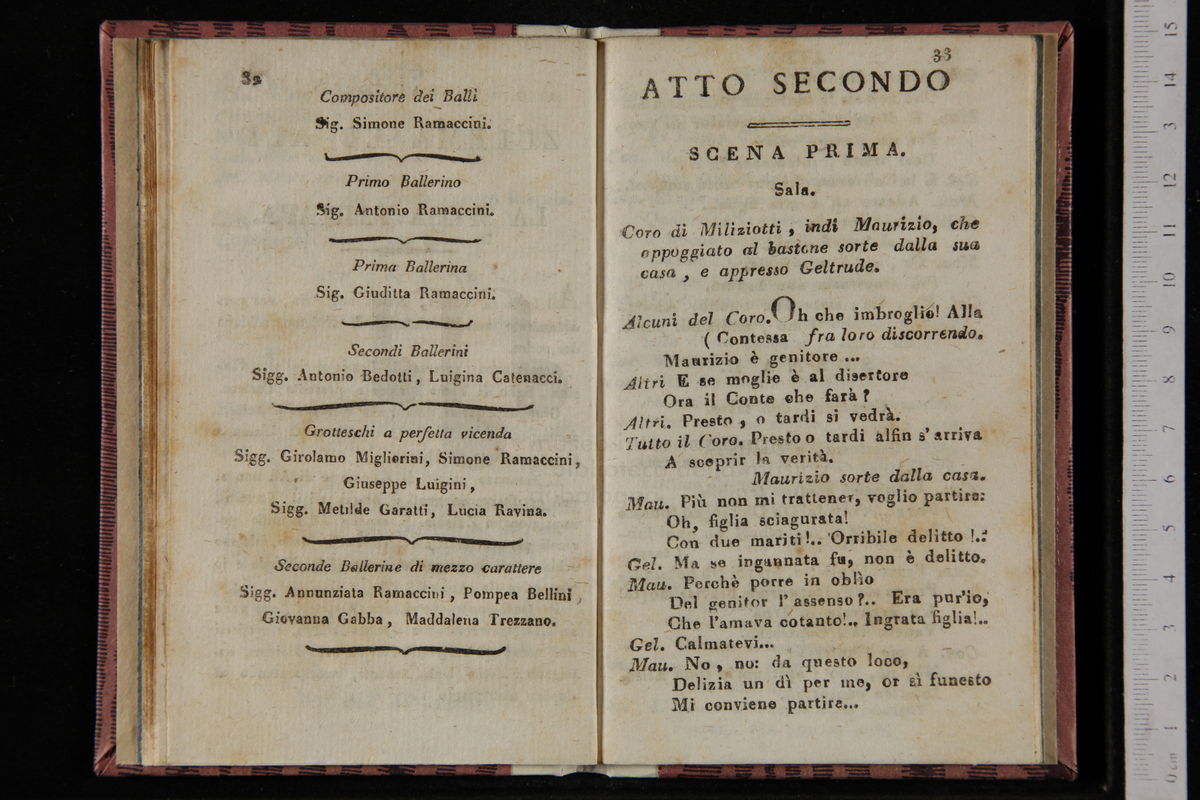 32
Compositore dei Balli
Sig. Simone Ramaccini.
Primo Ballerino
Sig. Antonio Ramaccini.
Prima Ballerina
Sig. Giuditta Ramaccini.
Secondi Ballerini
Sigg. Antonio Bedotti, Luigina Catenacci.
Grotteschi a perfetta vicenda
Sigg. Girolamo Miglierini, Simone Ramaccini,
Giuseppe Luigini,
Sigg. Metilde Garatti, Lucia Ravina.
Seconde Ballerine di mezzo carattere
Sigg. Annunziata Ramaccini, Pompea Bellini,
Giovanna Gabba, Maddalena Trezzano.
33
ATTO SECONDO
SCENA PRIMA.
Sala.
Coro di Miliziotti, indi Maurizio, che
appoggiato al bastone sorte dalla sua
casa, e appresso Geltrude.
Alcuni del Coro. Oh che imbroglio! Alla
( Contessa fra loro discorrendo.
Maurizio è genitore ...
Altri E se moglie è al disertore
Ora il Conte che farà?
Altri. Presto, o tardi si vedrà.
Tutto il Coro. Presto o tardi alfin s'arriva
A scoprir la verità.
Maurizio sorte dalla casa.
Mau. Più non mi trattener, voglio partire:
Oh, figlia sciagurata!
Con due mariti!.. Orribile delitto!..
Gel. Ma se ingannata fu, non è delitto.
Mau. Perchè porre in oblìo
Del genitor l'assenso?.. Era pur'io,
Che l'amava cotanto!.. Ingrata figlia!..
Gel. Calmatevi...
Mau. No, no: da questo loco,
Delizia un dì per me, or sì funesto
Mi conviene partire...
0 cm 1 2 3 4 5 6 7 8 9 10 11 12 13 14 15